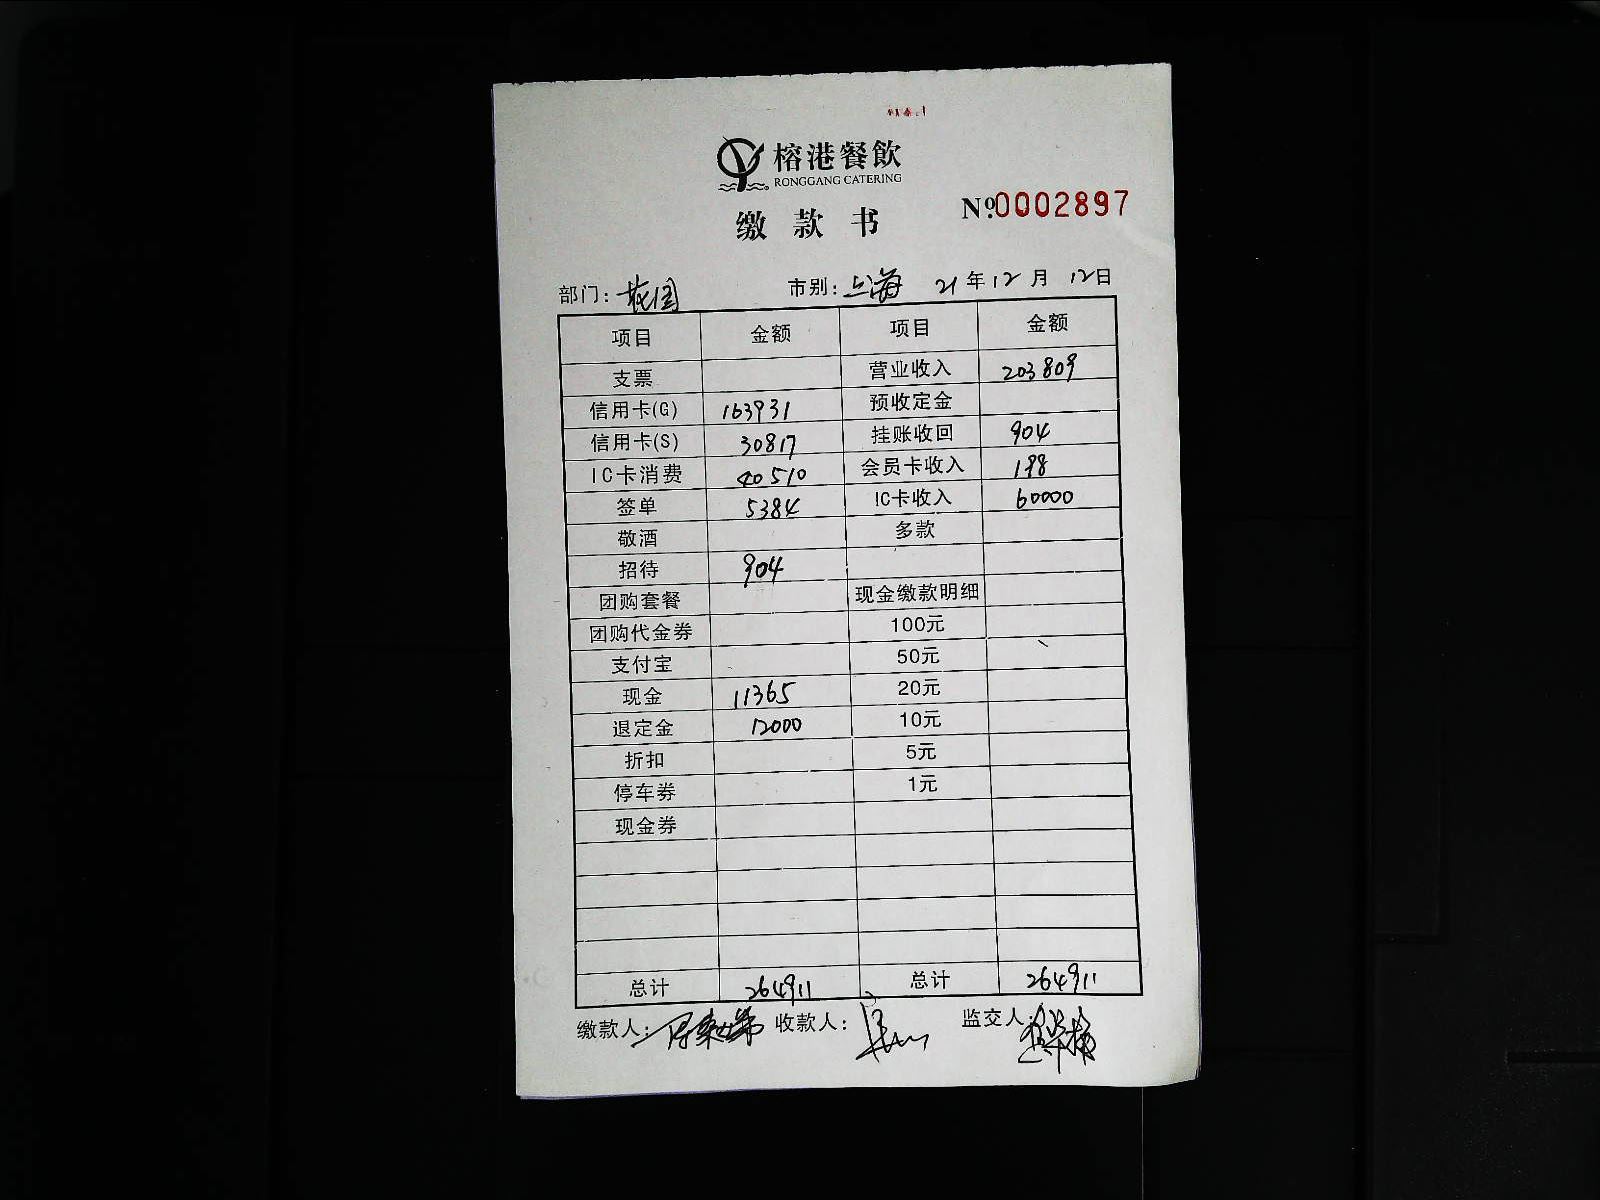 榕港餐飲
RONGGANG CATERING
缴款书
№0002897
部门：花园 市别：上海 21年12月12日
项目 金额 项目 金额
支票 营业收入 203809
信用卡(G) 163931 预收定金
信用卡(S) 30817 挂账收回 904
IC卡消费 40510 会员卡收入 198
签单 5384 IC卡收入 60000
敬酒 多款
招待 904
团购套餐 现金缴款明细
团购代金券 100元
支付宝 50元
现金 11365 20元
退定金 12000 10元
折扣 5元
停车券 1元
现金券
总计 264911 总计 264911
缴款人： 收款人： 监交人：